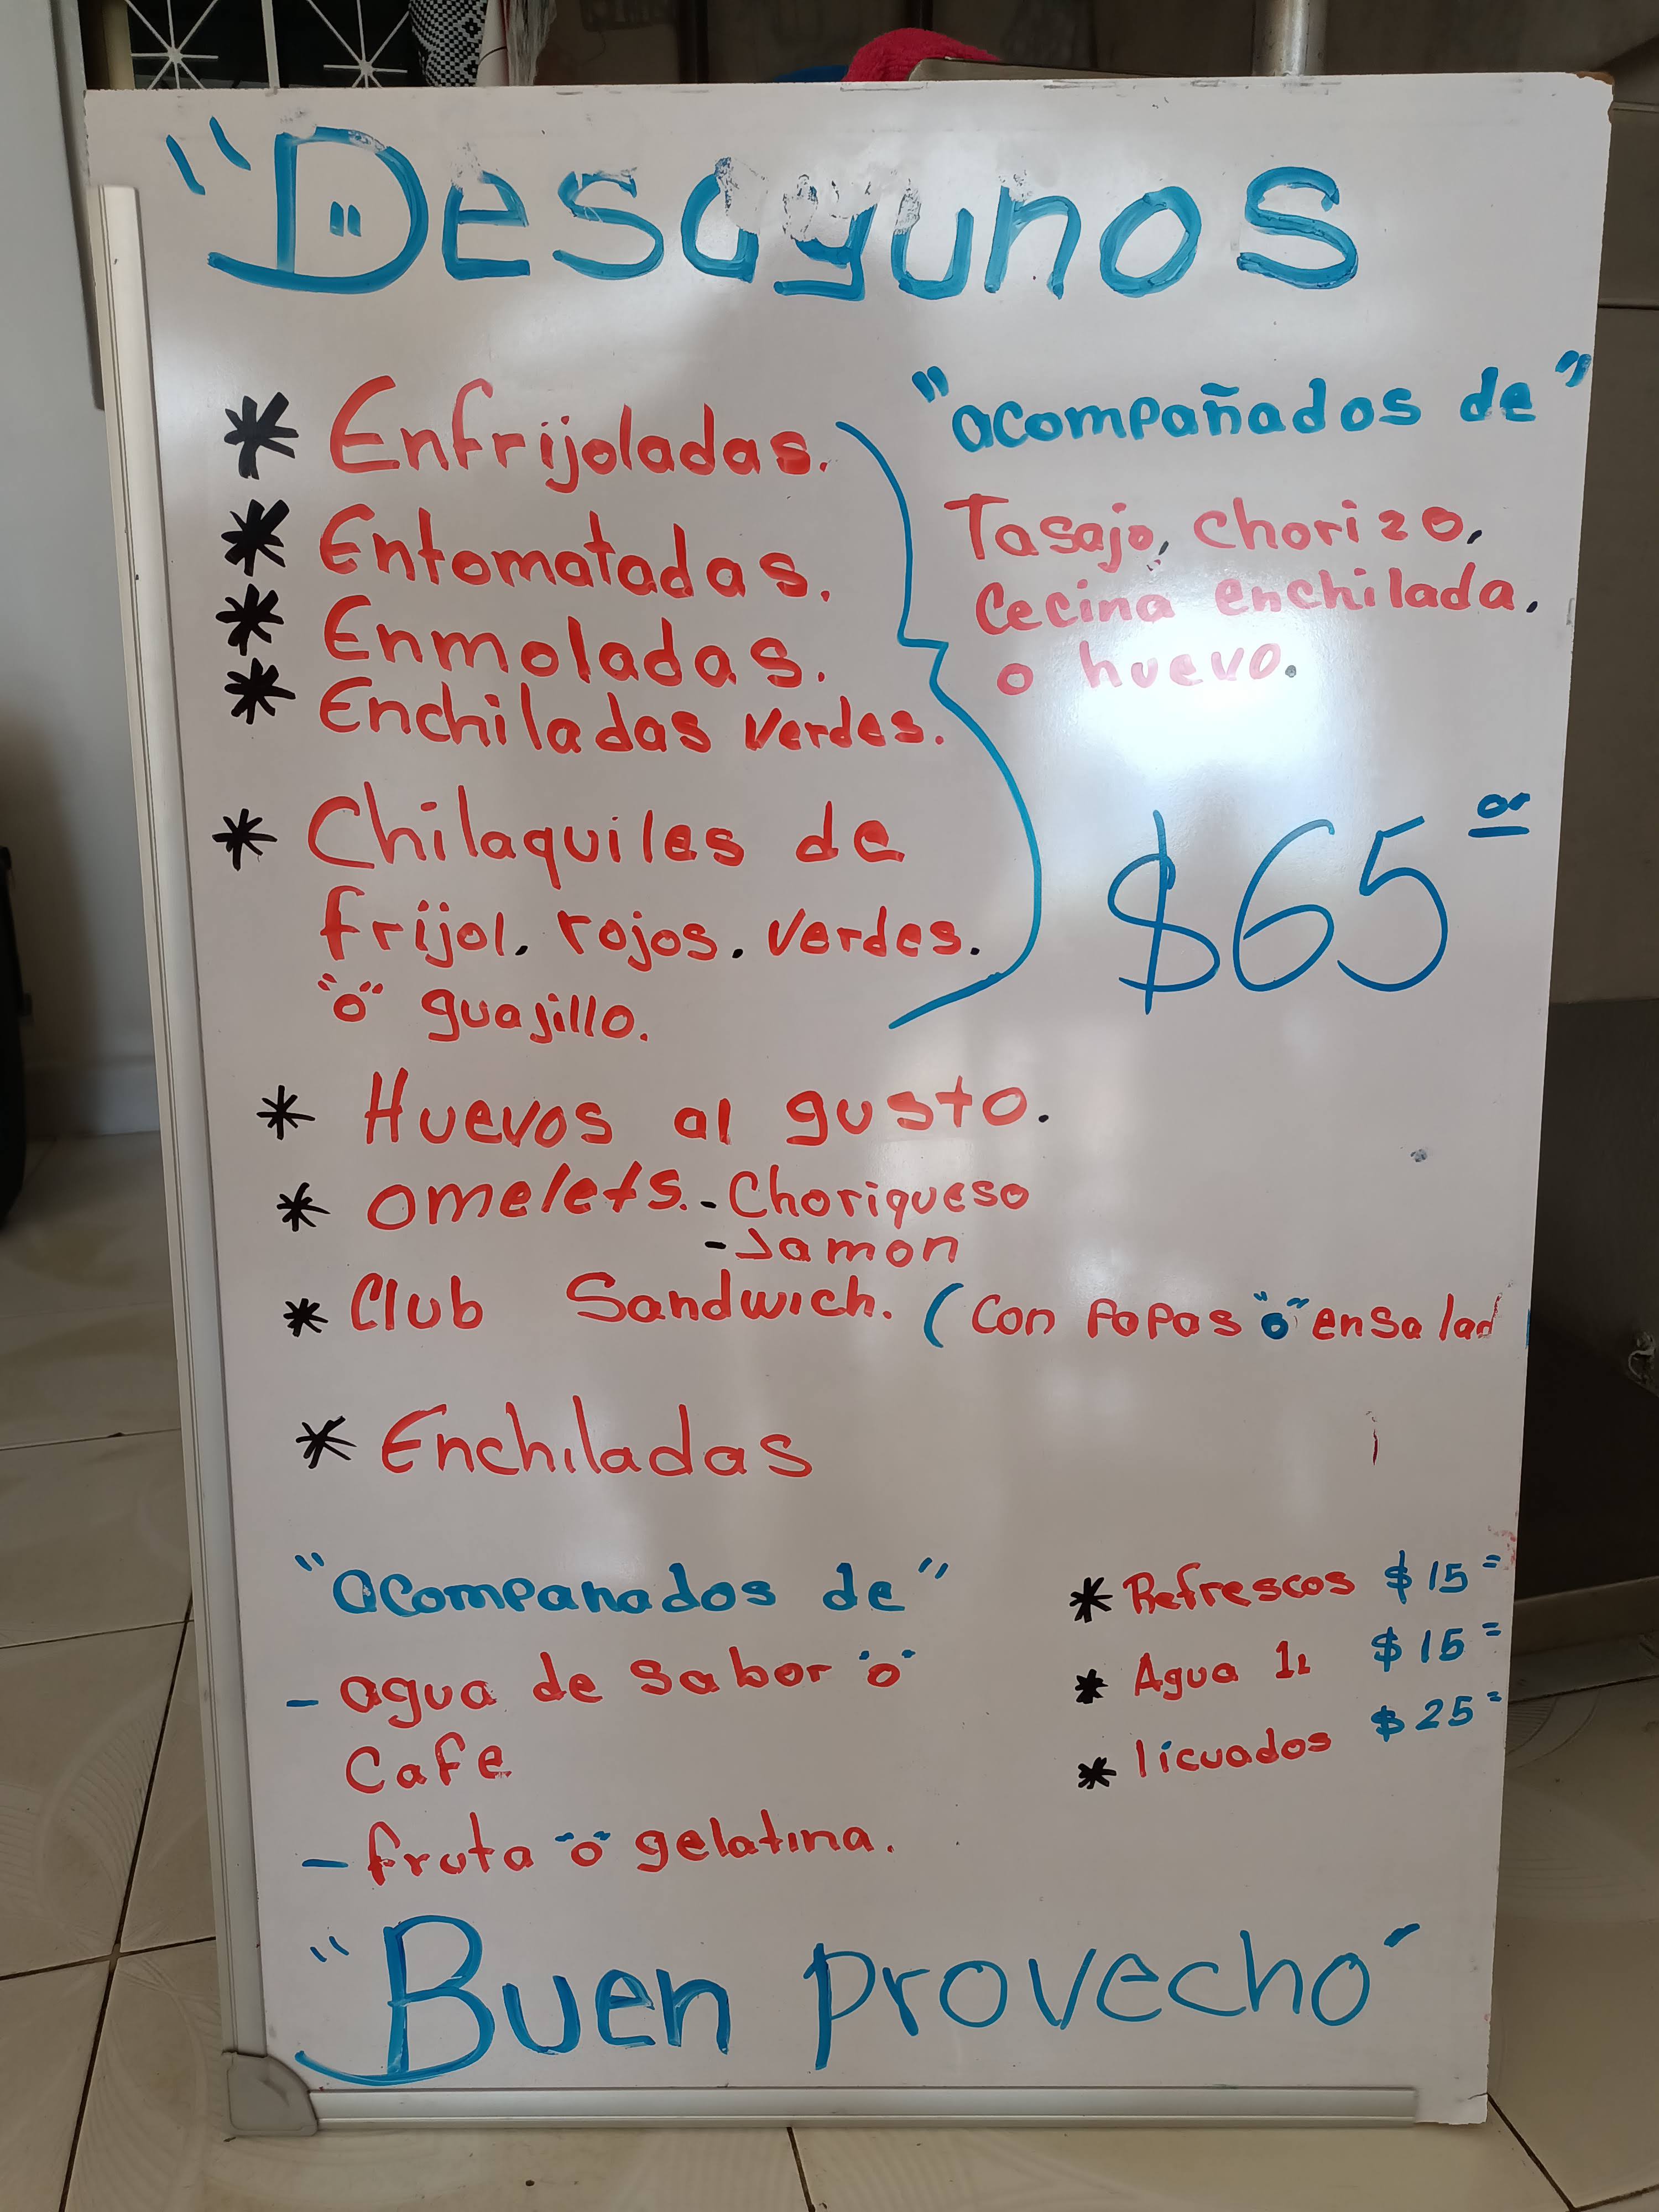 "Desayunos
* Enfrijoladas.
* Entomatadas.
* Enmoladas.
* Enchiladas verdes.
* Chilaquiles de
frijol, rojos, verdes.
"o" guajillo.
"acompañados de"
Tasajo, chorizo,
Cecina enchilada,
o huevo.
$65 00
* Huevos al gusto.
* omelets. - Choriqueso
- Jamon
* Club Sandwich. (Con papas "o" ensalad
* Enchiladas
"acompanados de"
- agua de sabor "o"
Cafe
- fruta "o" gelatina.
* Refrescos $15=
* Agua 1L $15=
* licuados $25=
"Buen provecho"